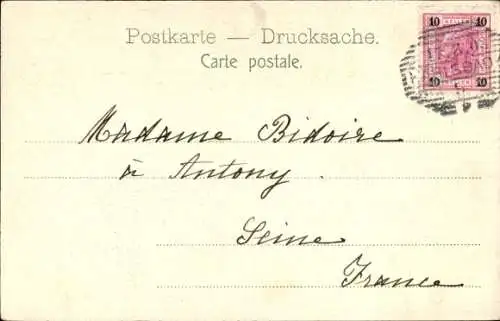 Postkarte — Drucksache.
Carte postale.
10 10
10 10
Madame Bidoire
à Antony
Seine
France